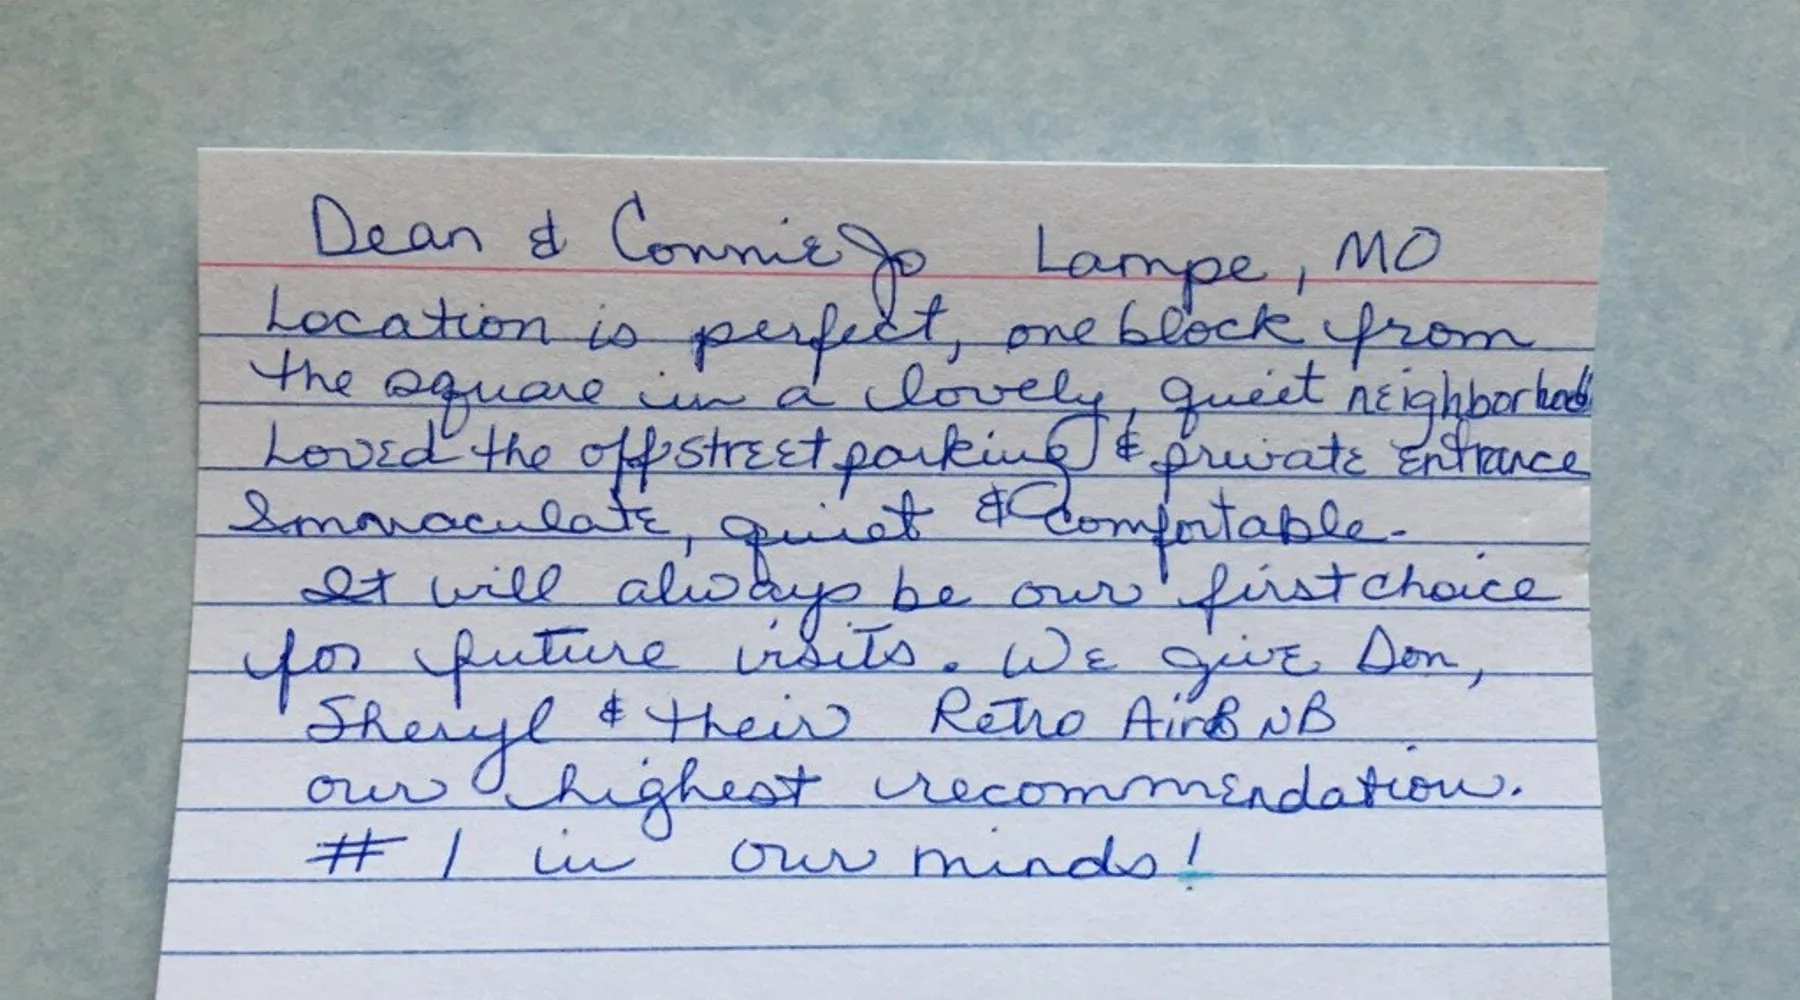 Dean & Connie Jo Lampe, MO
Location is perfect, one block from
the square in a lovely, quiet neighborhood
Loved the offstreet parking & private entrance
Immaculate, quiet & comfortable.
It will always be our first choice
for future visits. We give Don,
Sheryl & their Retro AirBNB
our highest recommendation.
# 1 in our minds!